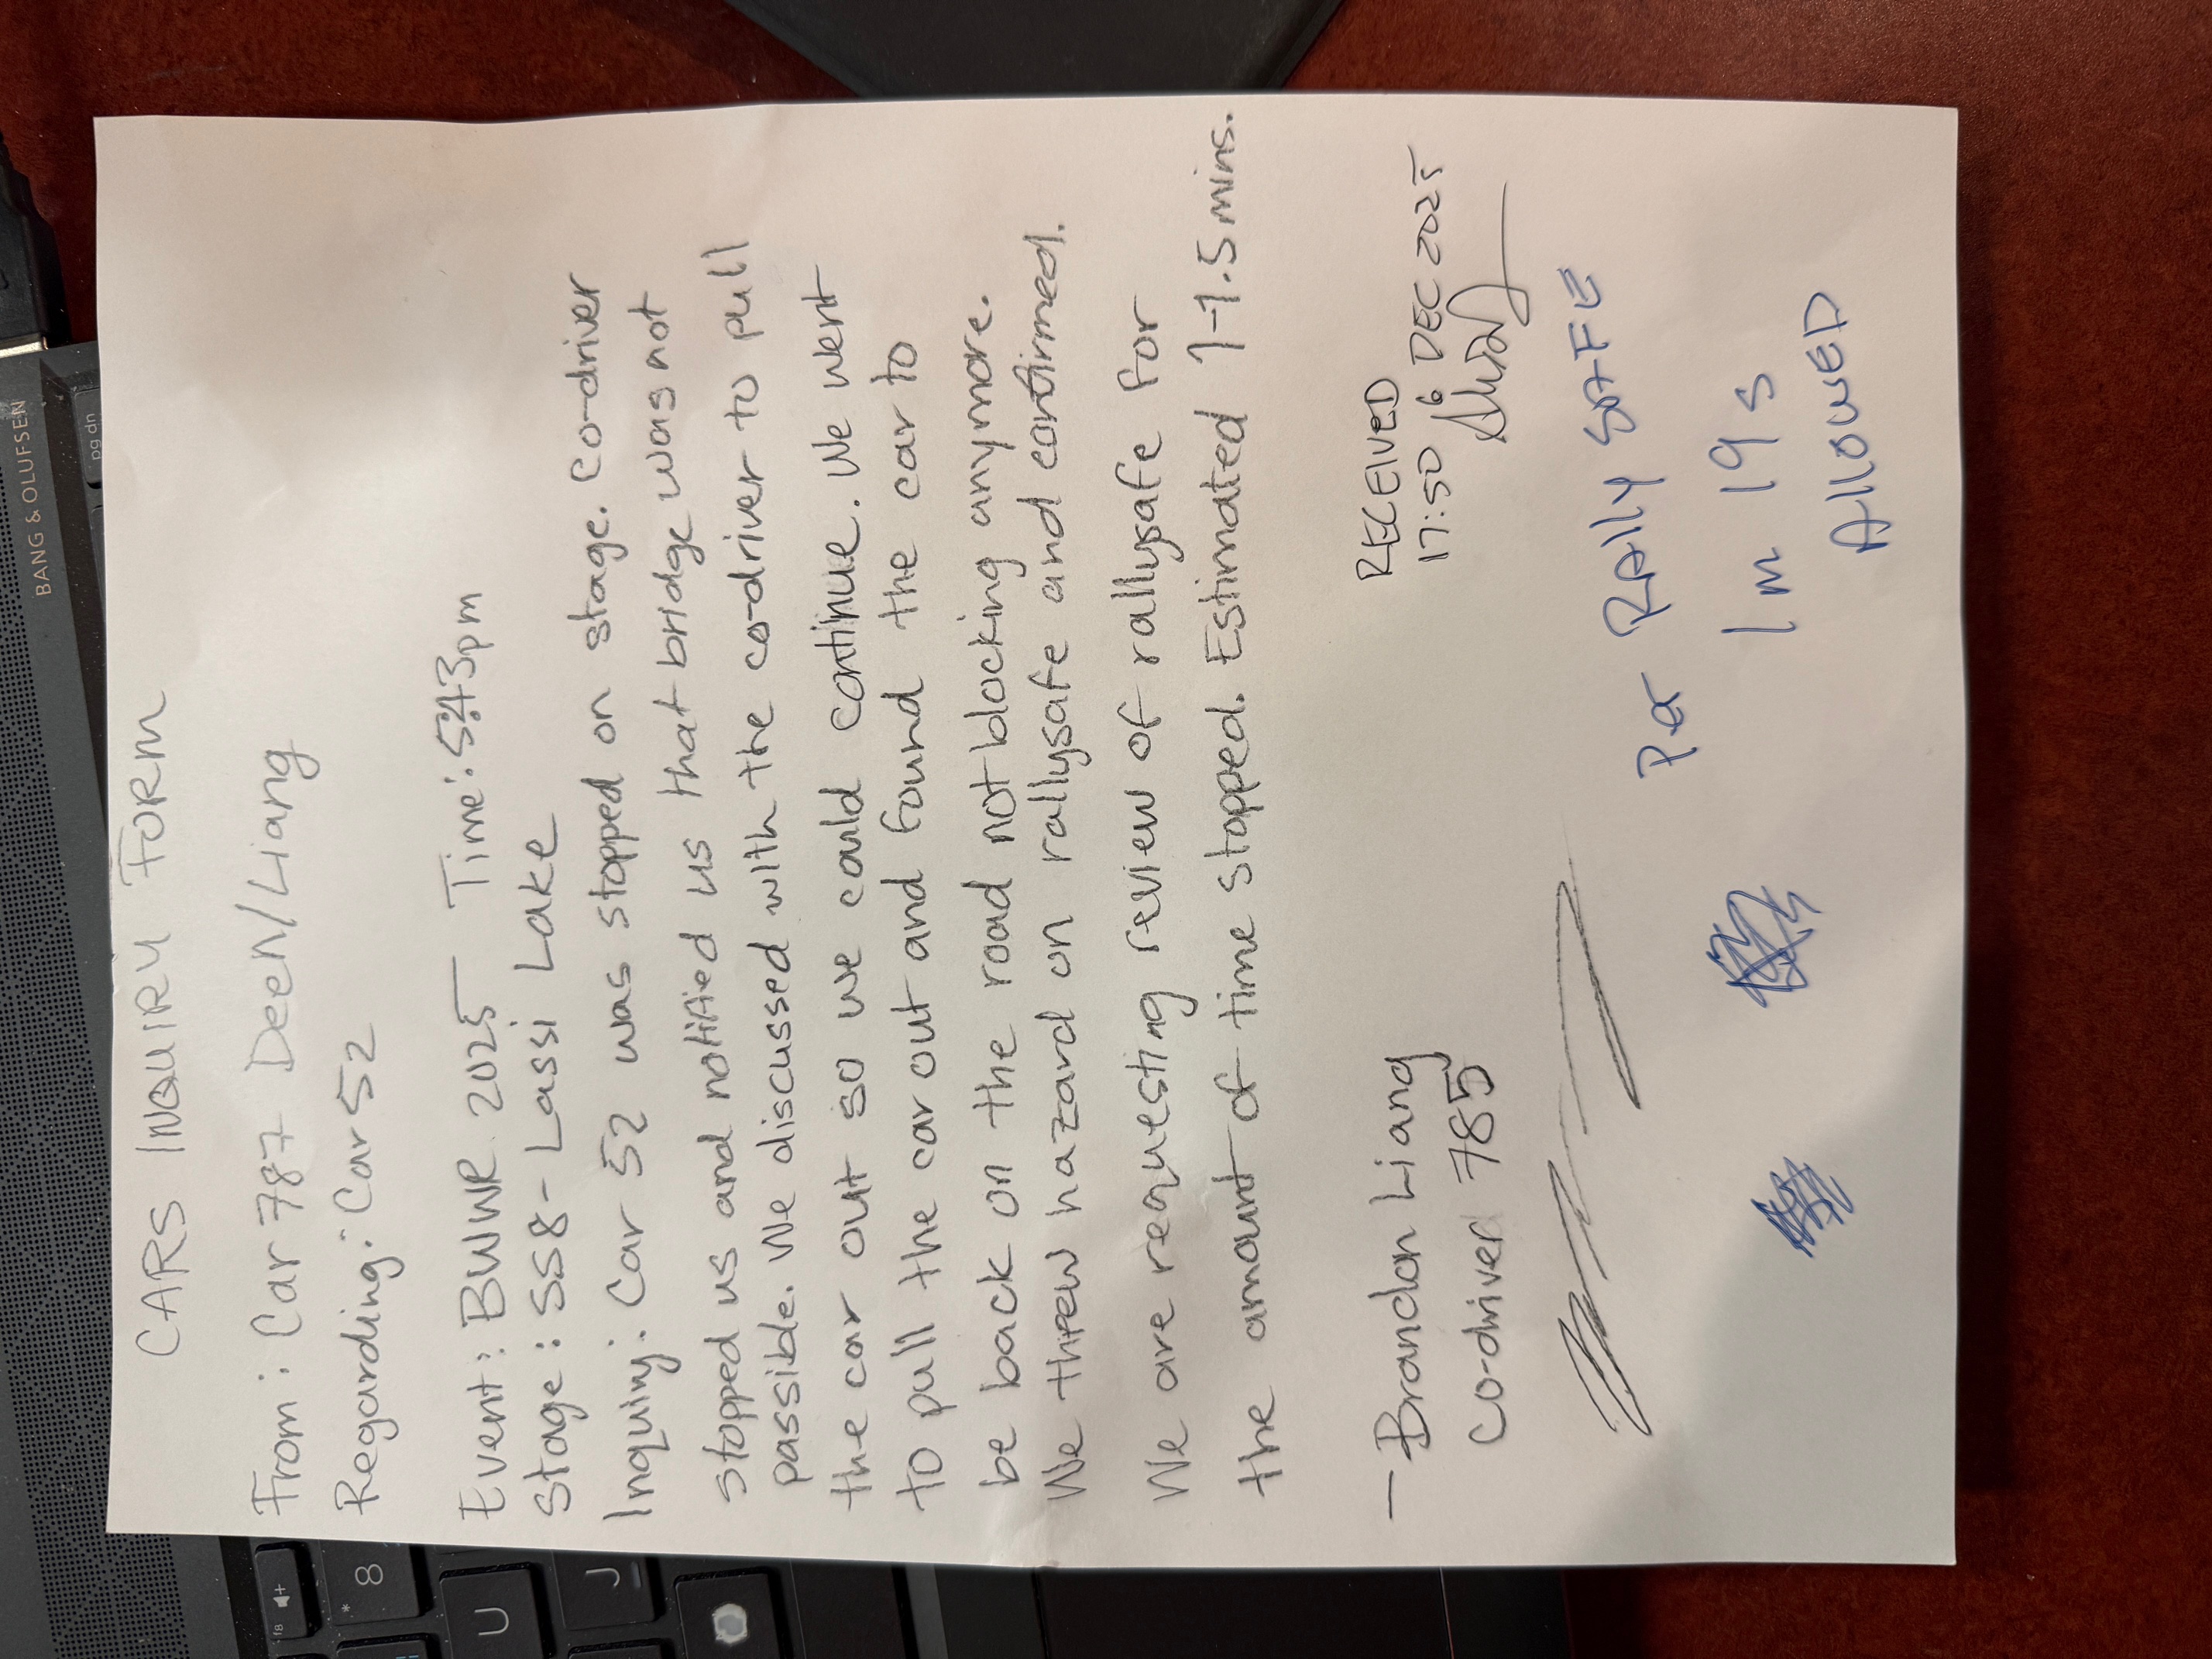 CARS INQUIRY FORM
From: Car 787 Deen/Liang
Regarding: Car 52
Event: BWWR 2025 Time: 5:43pm
Stage: SS8 - Lassi Lake
Inquiry: Car 52 was stopped on stage. Co-driver
stopped us and notified us that bridge was not
passible. We discussed with the co-driver to pull
the car out so we could continue. We went
to pull the car out and found the car to
be back on the road not blocking anymore.
We threw hazard on rallysafe and confirmed.
We are requesting review of rallysafe for
the amount of time stopped. Estimated 1-1.5 mins.
— Brandon Liang
Co-driver 785
RECEIVED
17:50 6 DEC 2025
Per Rally SAFE
1 m 19 s
AllOWED
BANG & OLUFSEN
pg dn
f8
*
8
U
J